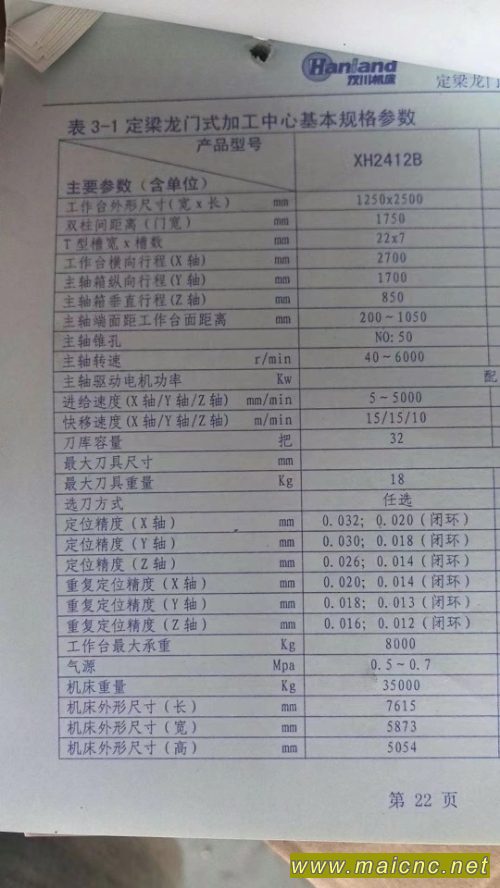 Hanland
汉川机床
定梁龙门
表 3-1 定梁龙门式加工中心基本规格参数
产品型号
主要参数（含单位） XH2412B
工作台外形尺寸(宽 x 长) mm 1250x2500
双柱间距离（门宽） mm 1750
T 型槽宽 x 槽数 mm 22x7
工作台横向行程(X 轴) mm 2700
主轴箱纵向行程(Y 轴) mm 1700
主轴箱垂直行程(Z 轴) mm 850
主轴端面距工作台面距离 mm 200～1050
主轴锥孔 NO: 50
主轴转速 r/min 40～6000
主轴驱动电机功率 Kw 配
进给速度(X 轴/Y 轴/Z 轴) mm/min 5～5000
快移速度(X 轴/Y 轴/Z 轴) m/min 15/15/10
刀库容量 把 32
最大刀具尺寸 mm
最大刀具重量 Kg 18
选刀方式 任选
定位精度（X 轴） mm 0.032; 0.020（闭环）
定位精度（Y 轴） mm 0.030; 0.018（闭环）
定位精度（Z 轴） mm 0.026; 0.014（闭环）
重复定位精度（X 轴） mm 0.020; 0.014（闭环）
重复定位精度（Y 轴） mm 0.018; 0.013（闭环）
重复定位精度（Z 轴） mm 0.016; 0.012（闭环）
工作台最大承重 Kg 8000
气源 Mpa 0.5～0.7
机床重量 Kg 35000
机床外形尺寸（长） mm 7615
机床外形尺寸（宽） mm 5873
机床外形尺寸（高） mm 5054
第 22 页
www.maicnc.net